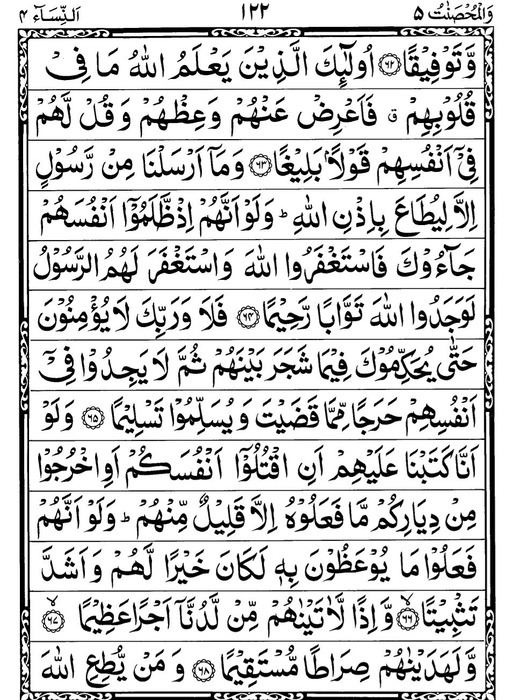 وَالْمُحْصَنٰتُ ٥ ١٢٢ اَلنِّسَآء ٤
وَّتَوْفِيْقًا ۝٦٢ اُولٰٓئِكَ الَّذِيْنَ يَعْلَمُ اللهُ مَا فِيْ
قُلُوْبِهِمْ ۗ فَاَعْرِضْ عَنْهُمْ وَعِظْهُمْ وَقُلْ لَّهُمْ
فِيْٓ اَنْفُسِهِمْ قَوْلًاۢ بَلِيْغًا ۝٦٣ وَمَآ اَرْسَلْنَا مِنْ رَّسُوْلٍ
اِلَّا لِيُطَاعَ بِاِذْنِ اللهِ ؕ وَلَوْ اَنَّهُمْ اِذْ ظَّلَمُوْٓا اَنْفُسَهُمْ
جَآءُوْكَ فَاسْتَغْفَرُوا اللهَ وَاسْتَغْفَرَ لَهُمُ الرَّسُوْلُ
لَوَجَدُوا اللهَ تَوَّابًا رَّحِيْمًا ۝٦٤ فَلَا وَرَبِّكَ لَا يُؤْمِنُوْنَ
حَتّٰى يُحَكِّمُوْكَ فِيْمَا شَجَرَ بَيْنَهُمْ ثُمَّ لَا يَجِدُوْا فِيْٓ
اَنْفُسِهِمْ حَرَجًا مِّمَّا قَضَيْتَ وَيُسَلِّمُوْا تَسْلِيْمًا ۝٦٥ وَلَوْ
اَنَّا كَتَبْنَا عَلَيْهِمْ اَنِ اقْتُلُوْٓا اَنْفُسَكُمْ اَوِ اخْرُجُوْا
مِنْ دِيَارِكُمْ مَّا فَعَلُوْهُ اِلَّا قَلِيْلٌ مِّنْهُمْ ؕ وَلَوْ اَنَّهُمْ
فَعَلُوْا مَا يُوْعَظُوْنَ بِهٖ لَكَانَ خَيْرًا لَّهُمْ وَاَشَدَّ
تَثْبِيْتًا ۝٦٦ۙ وَّاِذًا لَّاٰتَيْنٰهُمْ مِّنْ لَّدُنَّآ اَجْرًا عَظِيْمًا ۝٦٧ۙ
وَّلَهَدَيْنٰهُمْ صِرَاطًا مُّسْتَقِيْمًا ۝٦٨ وَمَنْ يُّطِعِ اللهَ